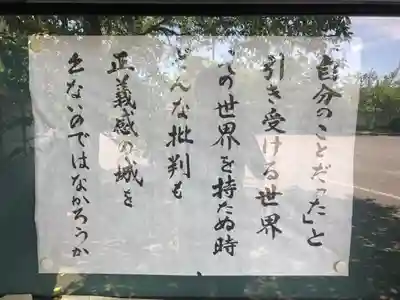 「自分のことだった」と
引き受ける世界
この世界を持たぬ時
どんな批判も
正義感の城を
出ないのではなかろうか